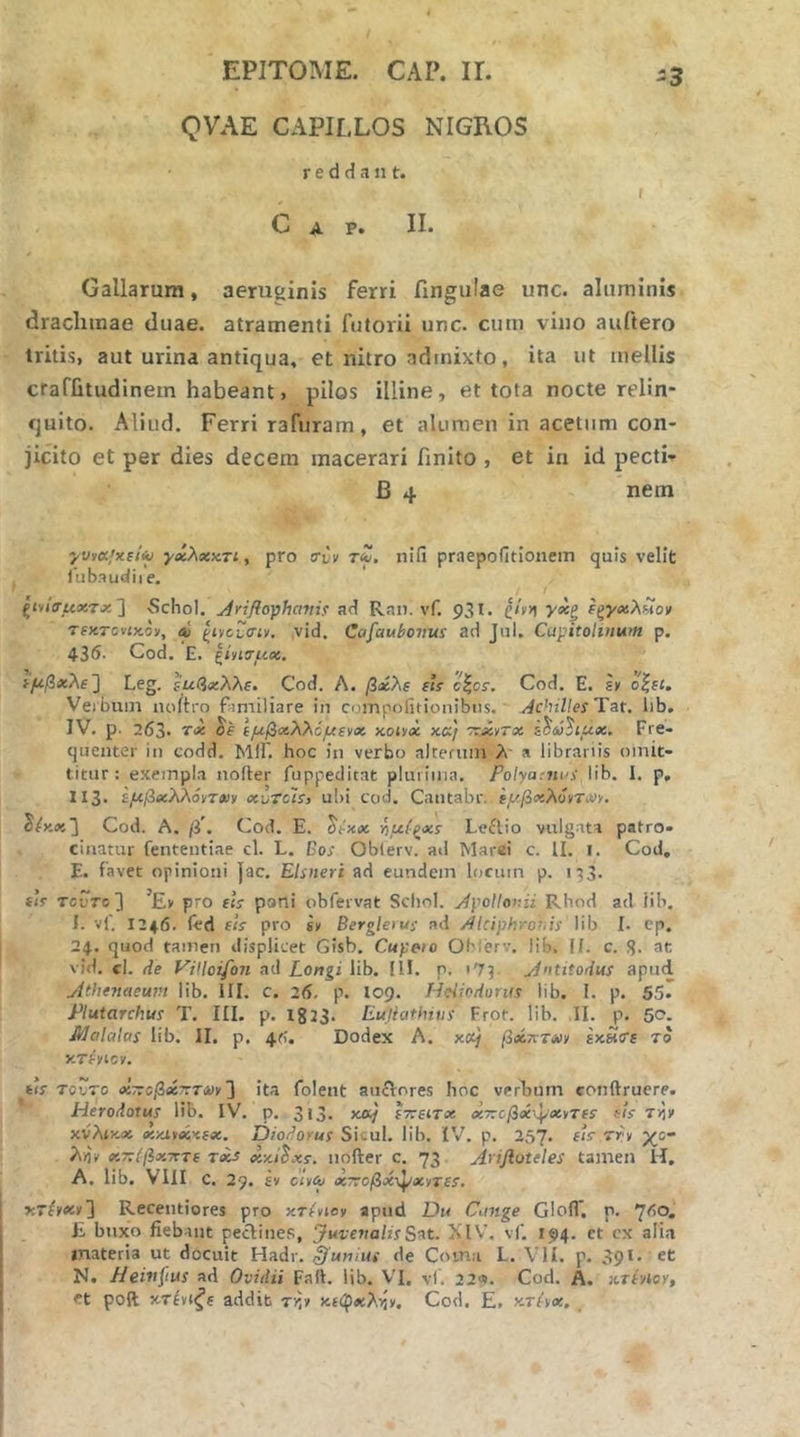 EPITOME. CAP. II. 23
QVAE CAPILLOS NIGROS
reddant.
CAP. II.
Gallarum, aeruginis ferri ſingulae unc. aluminis
drachmae duae. atramenti ſutorii unc. cum vino auſtero
tritis, aut urina antiqua, et nitro admixto, ita ut mellis
craſſitudinem habeant, pilos illine, et tota nocte relin-
quito. Aliud. Ferri raſuram, et alumen in acetum con-
jicito et per dies decem macerari ſinito, et in id pecti-
B 4 nem
γυναικείῳ γάλακτι, pro σὺν τῷ. niſi praepoſitionem quis velit
ſubaudire.
ῥινίσματα] Schol. Ariſtophanis ad Ran. vſ. 931. ῥίνη γὰρ ἐργαλεῖον
τεκτονικὸν, ᾧ ῥινοῦσιν. vid. Caſaubonus ad Jul. Capitolinum p.
436. Cod. E. ῥίνισμα.
ἔμβαλε] Leg. ἔμβαλλε. Cod. A. βάλε εἰς ὄξος. Cod. E. ἐν ὄξει.
Verbum noſtro familiare in compoſitionibus. Achilles Tat. lib.
IV. p. 263. τὰ δὲ ἐμβαλλόμενα κοινὰ καὶ πάντα ἐδώδιμα. Fre-
quenter in codd. MſſſT. hoc in verbo alterum λ a librariis omit-
titur: exempla noſter ſuppeditat plurima. Polyaenus lib. I. p.
113. ἐμβαλλόντων αὐτοῖς, ubi cod. Cantabr. ἐμβαλόντων.
δέκα] Cod. A. β'. Cod. E. δέκα ἡμέρας Lectio vulgata patro-
cinatur ſententiae cl. L. Bos Obſerv. ad Marci c. II. 1. Cod.
E. favet opinioni Jac. Elsneri ad eundem locum p. 133.
εἰς τοῦτο] Ἐν pro εἰς poni obſervat Schol. Apollonii Rhod ad lib.
I. vſ. 1246. ſed εἰς pro ἐν Berglerus ad Alciphronis lib I. ep.
24. quod tamen displicet Gisb. Cupero Obſerv. lib. II. c. 8. at
vid. cl. de Villoiſon ad Longi lib. III. p. 173. Antitodus apud
Athenaeum lib. III. c. 26. p. 109. Heliodorus lib. I. p. 55.
Plutarchus T. III. p. 1823. Euſtathius Erot. lib. II. p. 50.
Malalas lib. II. p. 46. Dodex A. καὶ βάπτων ἑκάστε τὸ
κτένιον.
εἰς τοῦτο ἀποβάπτων] ita ſolent auctores hoc verbum conſtruere.
Herodotus lib. IV. p. 313. καὶ ἔπειτα ἀποβάψαντες εἰς τὴν
κύλικα ἀκινάκεα. Diodorus Sicul. lib. IV. p. 257. εἰς τὴν χο-
λὴν ἀπέβαπτε τὰς ἀκίδας. noſter c. 73 Ariſtoteles tamen H.
A. lib. VIII c. 29. ἐν οἴνῳ ἀποβάψαντες.
κτέναν] Recentiores pro κτένιον apud Du Cange Gloſſ. p. 760.
E buxo fiebant pectines, Juvenalis Sat. XIV. vſ. 194. et ex alia
materia ut docuit Hadr. Junius de Coma L. VII. p. 391. et
N. Heinſius ad Ovidii Faſt. lib. VI. vſ. 229. Cod. A. κτένιον,
et poſt κτένιζε addit τὴν κεφαλήν. Cod. E. κτένα.